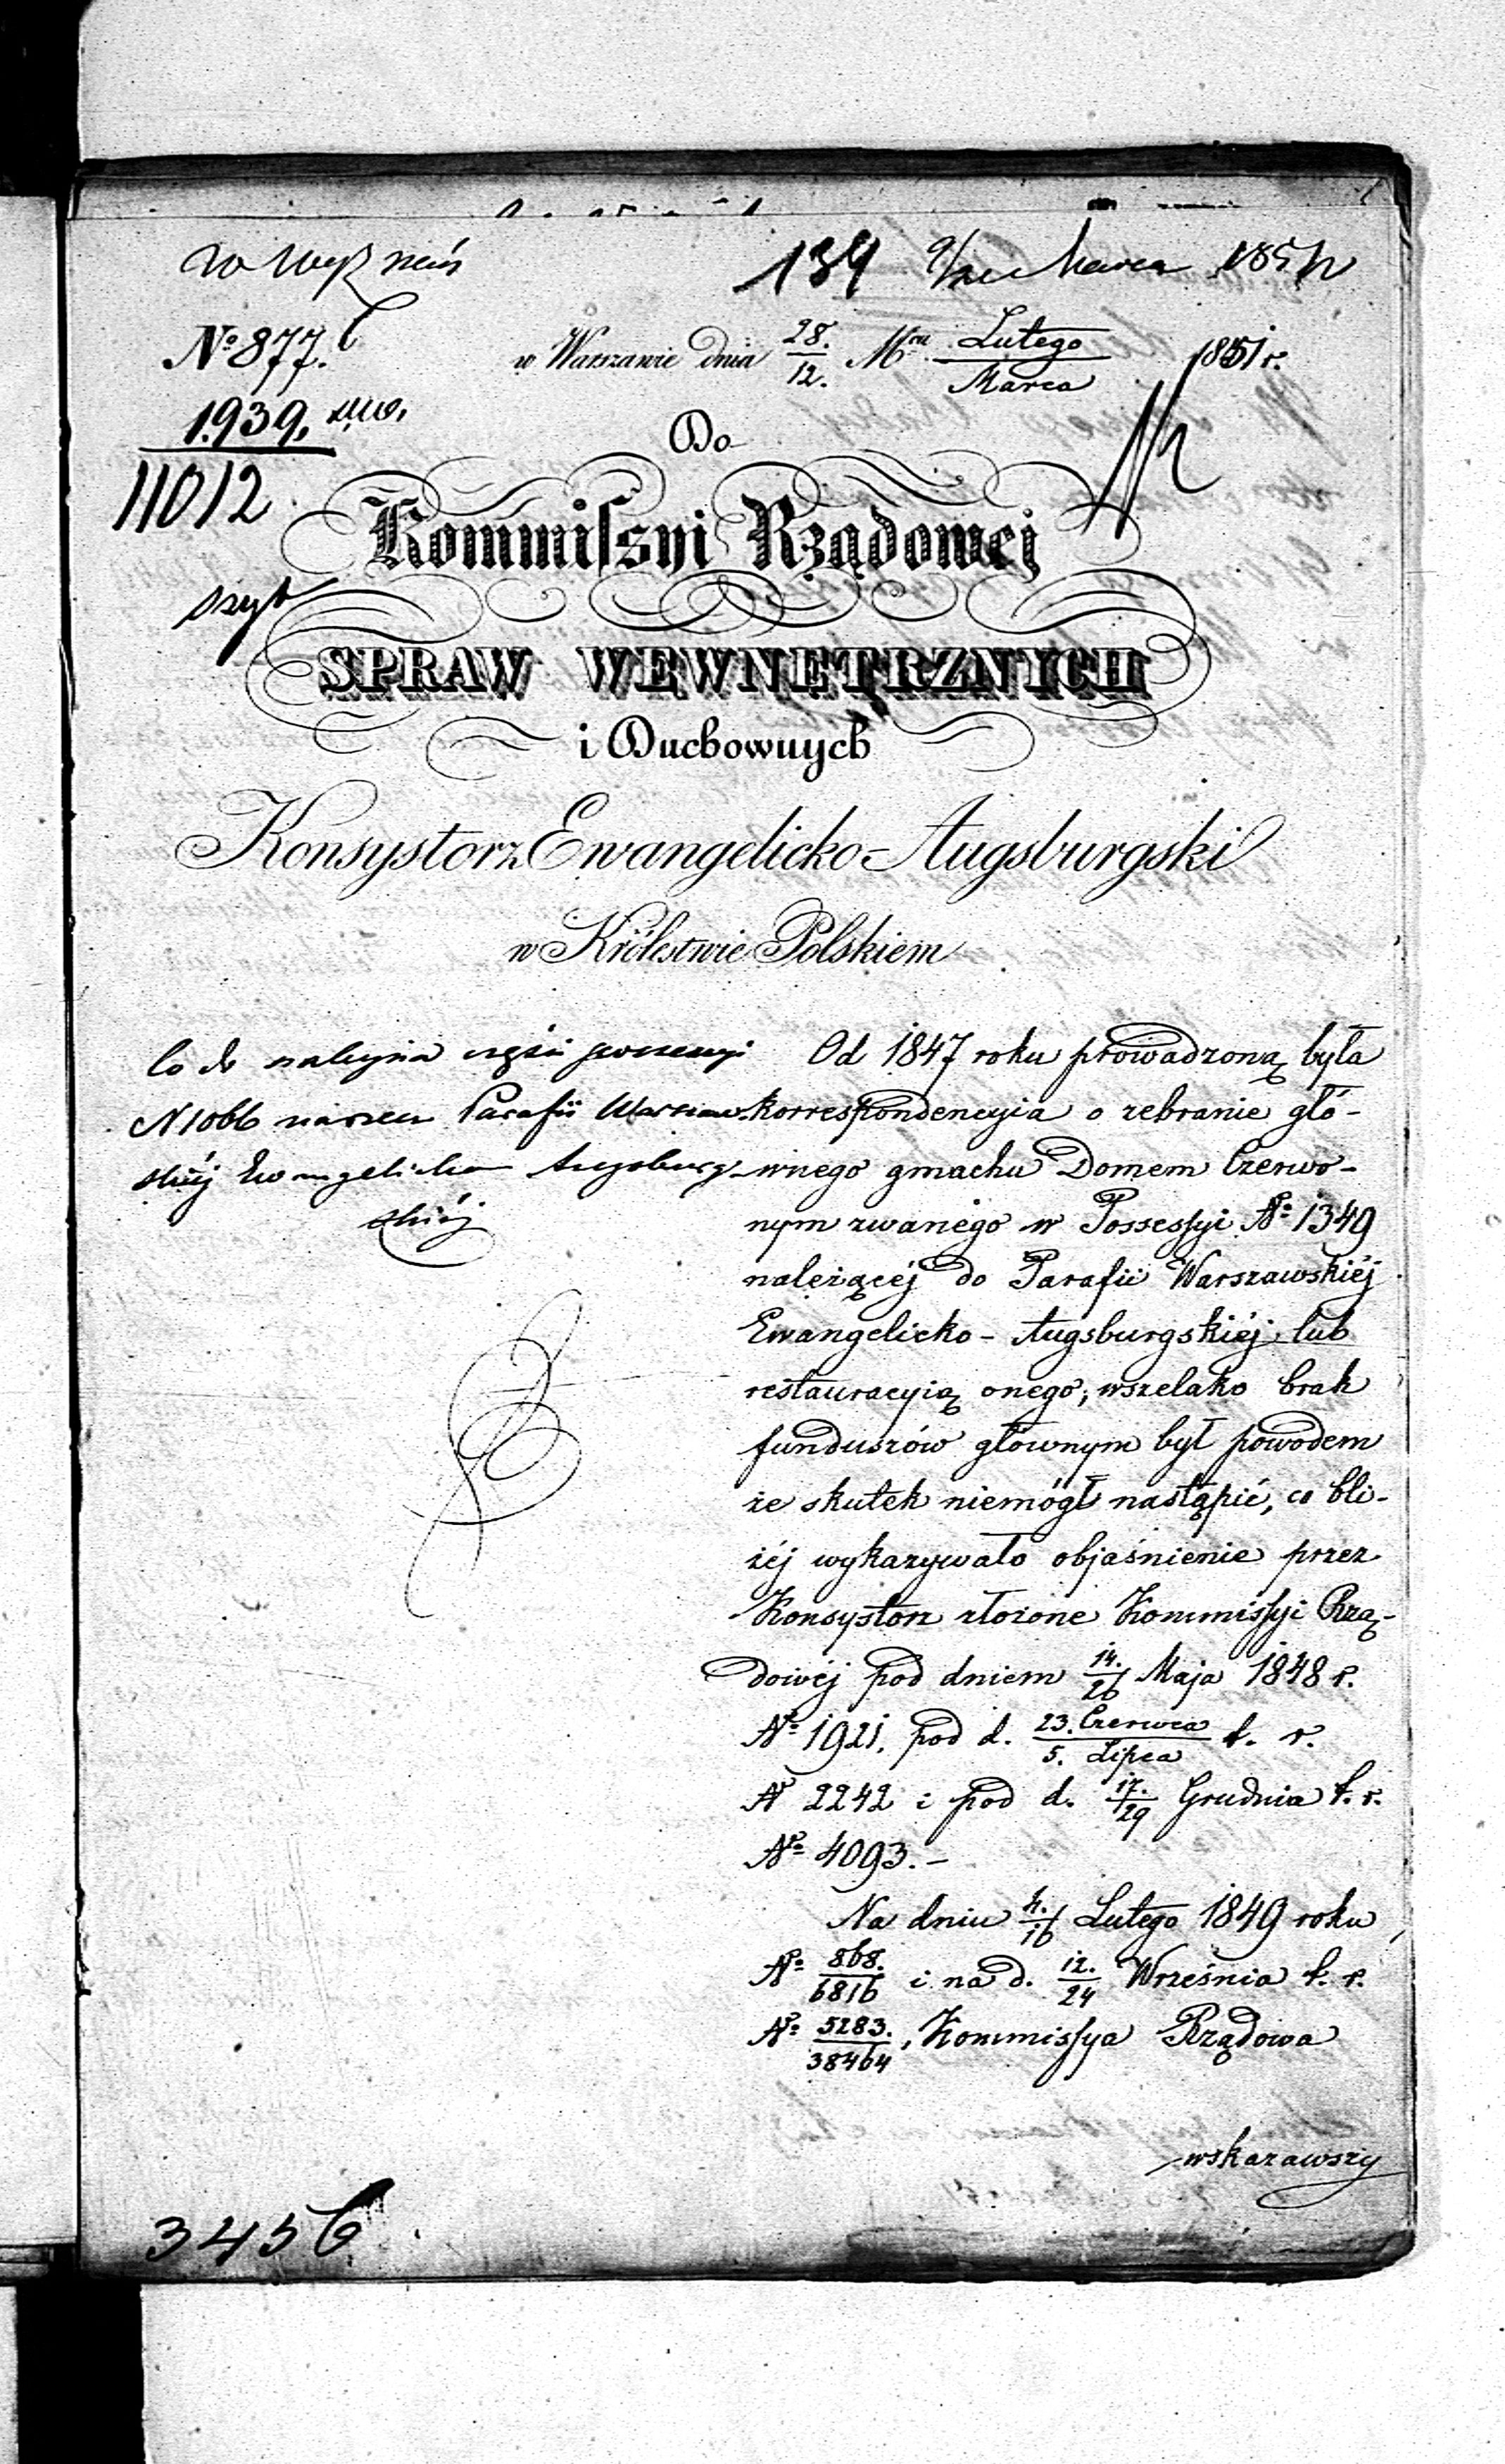 134 Marca
Nº 877.
w Warszawie dnia 28./12. Mca Lutego/Marca 1851 r.
1939.
11012
Do
Kommissyi Rządowej
SPRAW WEWNĘTRZNYCH
i Duchownych
Konsystorz Ewangelicko-Augsburgski
w Królestwie Polskiem
Co do nabycia części possessyi
N 1066 na rzecz Parafii Warszaw-
skiéj Ewangelicko Augsburg-
skiéj
Od 1847 roku prowadzoną była
korrespondencyia o zebranie głó-
wnego gmachu Domem Czerwo-
nym zwanego w Possessyi Nº 1349
należącéj do Parafii Warszawskiéj
Ewangelicko-Augsburgskiéj lub
restauracyią onego; wszelako brak
funduszów głównym był powodem
że skutek niemógł nastąpić, co bli-
żéj wykazywało objaśnienie przez
Konsystorz złożone Kommissyi Rzą-
dowéj pod dniem 14./26 Maja 1848 r.
Nº 1921. pod d. 23. Czerwca/5. Lipca t. r.
N 2242 i pod d. 17./29 Grudnia t. r.
Nº 4093.-
Na dniu 4./16 Lutego 1849 roku
Nº 868./6816 i na d. 12./24 Września t. r.
Nº 5283./38464, Kommissya Rządowa
wskazawszy
3456